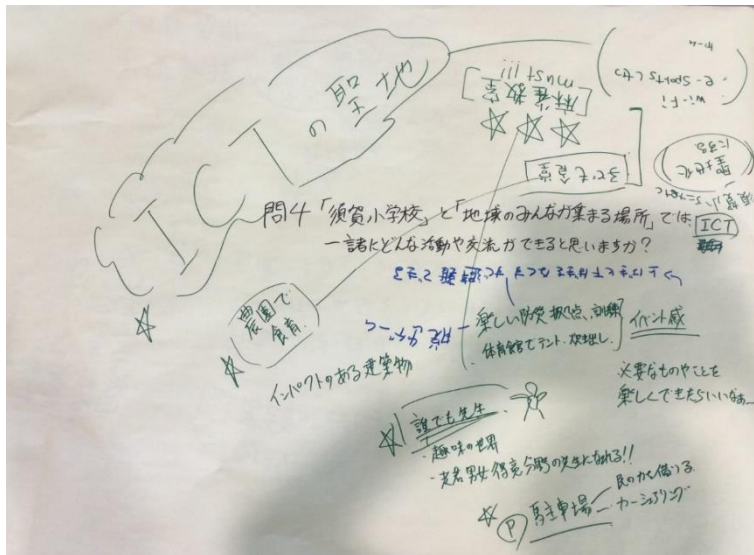 ICTの聖地
wi-fi
e-sports (など)
ゲーム
[麻雀教室]
must !!!
子ども食堂
聖地化
になる
問4「須賀小学校」と「地域のみんなが集まる場所」では
一諸にどんな活動や交流ができると思いますか?
ICT
農園で
食育
インパクトのある建築物
脱出ゲーム
楽しい防災拠点、訓練
体育館でテント、炊き出し
イベント感
必要なものやことを
楽しくできたらいいなぁー
誰でも先生
・趣味の世界
・老若男女 得意分野の先生になれる!!
P 駐車場
民の力を借りる
カーシェアリング